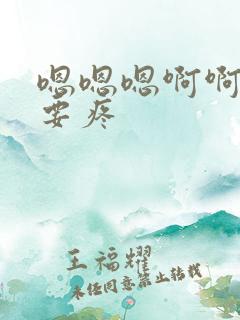 嗯嗯嗯啊啊
要疼
王福耀
未经同意禁止转载